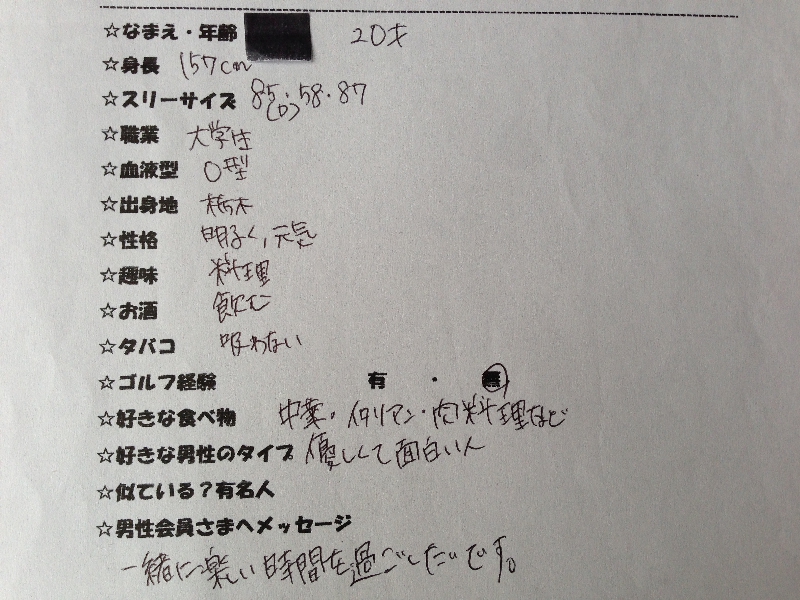 ☆なまえ・年齢 20才
☆身長 157cm
☆スリーサイズ 85(D)・58・87
☆職業 大学生
☆血液型 O型
☆出身地 栃木
☆性格 明るく,元気
☆趣味 料理
☆お酒 飲む
☆タバコ 吸わない
☆ゴルフ経験 有・無
☆好きな食べ物 中華・イタリアン・肉料理など
☆好きな男性のタイプ 優しくて面白い人
☆似ている?有名人
☆男性会員さまへメッセージ
一緒に楽しい時間を過ごしたいです。